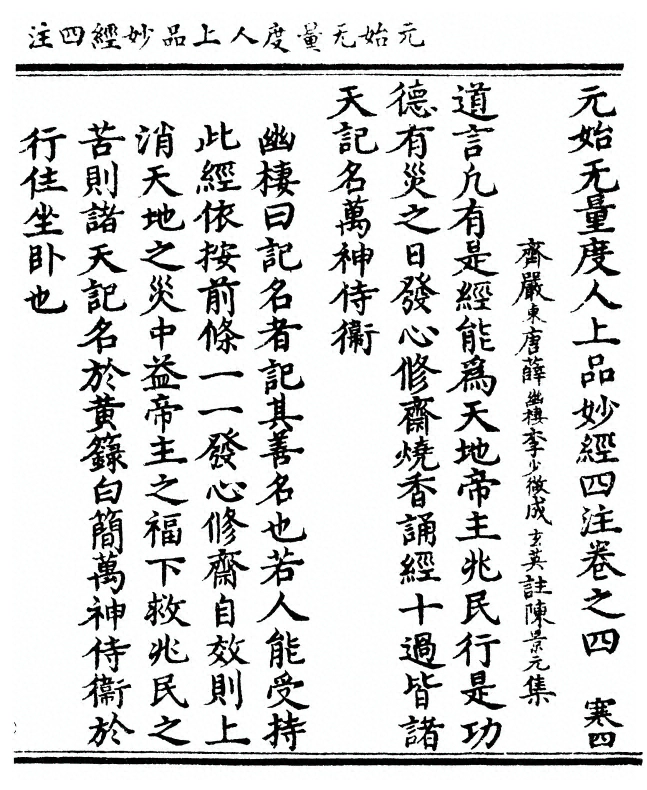 元始无量度人上品妙經四注
元始无量度人上品妙經四注卷之四　寒四
齊嚴東唐薛幽棲李少微成玄英註陳景元集
道言凡有是經能為天地帝主兆民行是功
德有災之日發心修齋燒香誦經十過皆諸
天記名萬神侍衛
幽棲曰記名者記其善名也若人能受持
此經依按前條一一發心修齋自效則上
消天地之災中益帝主之福下救兆民之
苦則諸天記名於黃籙白簡萬神侍衛於
行住坐卧也